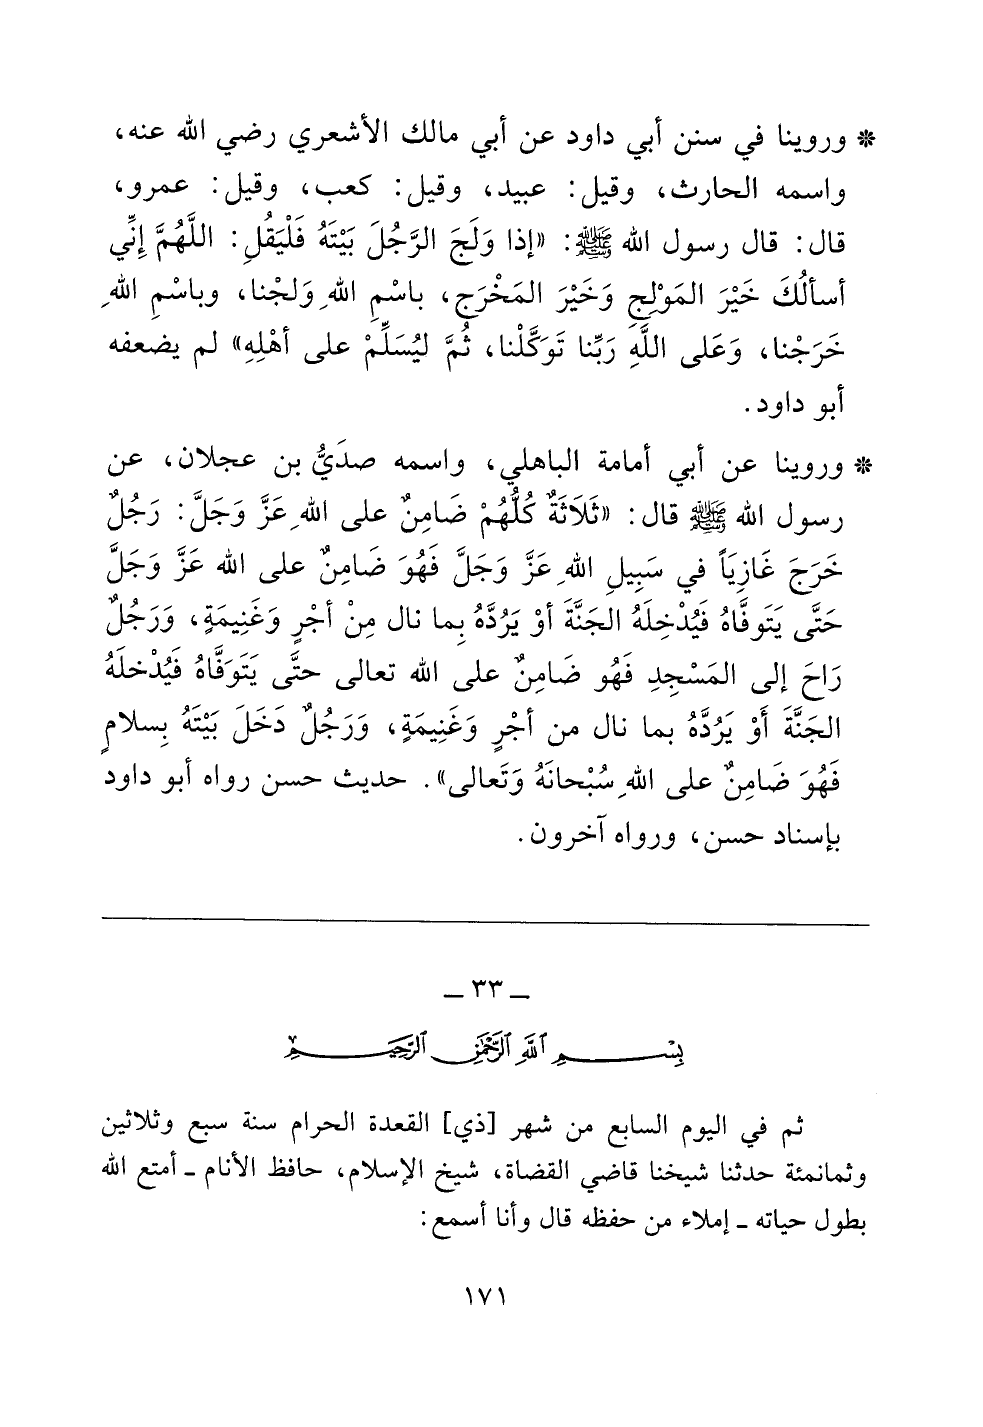 * وروينا في سنن أبي داود عن أبي مالك الأشعري رضي الله عنه،
واسمه الحارث، وقيل: عبيد، وقيل: كعب، وقيل: عمرو،
قال: قال رسول الله ﷺ: «إذا وَلَجَ الرَّجُلَ بَيْتَهُ فَلْيَقُلِ: اللَّهُمَّ إِنِّي
أسألُكَ خَيْرَ المَوْلِجِ وَخَيْرَ المَخْرَجِ، باسْمِ اللهِ وَلجْنا، وباسْمِ اللهِ
خَرَجْنا، وَعَلى اللَّهِ رَبِّنا تَوَكَّلْنا، ثُمَّ ليُسَلِّمْ على أهْلِهِ» لم يضعفه
أبو داود.
* وروينا عن أبي أمامة الباهلي، واسمه صدَيُّ بن عجلان، عن
رسول الله ﷺ قال: «ثَلَاثَةٌ كُلُّهُمْ ضَامِنٌ على اللهِ عَزَّ وَجَلَّ: رَجُلٌ
خَرَجَ غَازِيَاً في سَبِيلِ اللهِ عَزَّ وَجَلَّ فَهُوَ ضَامِنٌ على الله عَزَّ وَجَلَّ
حَتَّى يَتَوفَّاهُ فَيُدْخِلَهُ الجَنَّةَ أوْ يَرُدَّهُ بِما نال مِنْ أجْرٍ وَغَنِيمَةٍ، وَرَجُلٌ
رَاحَ إلى المَسْجِدِ فَهُو ضَامِنٌ على الله تعالى حتَّى يَتَوَفَّاهُ فَيُدْخلَهُ
الجَنَّةَ أَوْ يَرُدَّهُ بما نال من أجْرٍ وَغَنِيمَةٍ، وَرَجُلٌ دَخَلَ بَيْتَهُ بِسلامٍ
فَهُوَ ضَامِنٌ على اللهِ سُبْحانَهُ وَتَعالى». حديث حسن رواه أبو داود
بإسناد حسن، ورواه آخرون.
ـ ٣٣ ـ
بِسْمِ اللَّهِ الرَّحْمَٰنِ الرَّحِيمِ
ثم في اليوم السابع من شهر [ذي] القعدة الحرام سنة سبع وثلاثين
وثمانمئة حدثنا شيخنا قاضي القضاة، شيخ الإسلام، حافظ الأنام ـ أمتع الله
بطول حياته ـ إملاء من حفظه قال وأنا أسمع:
١٧١